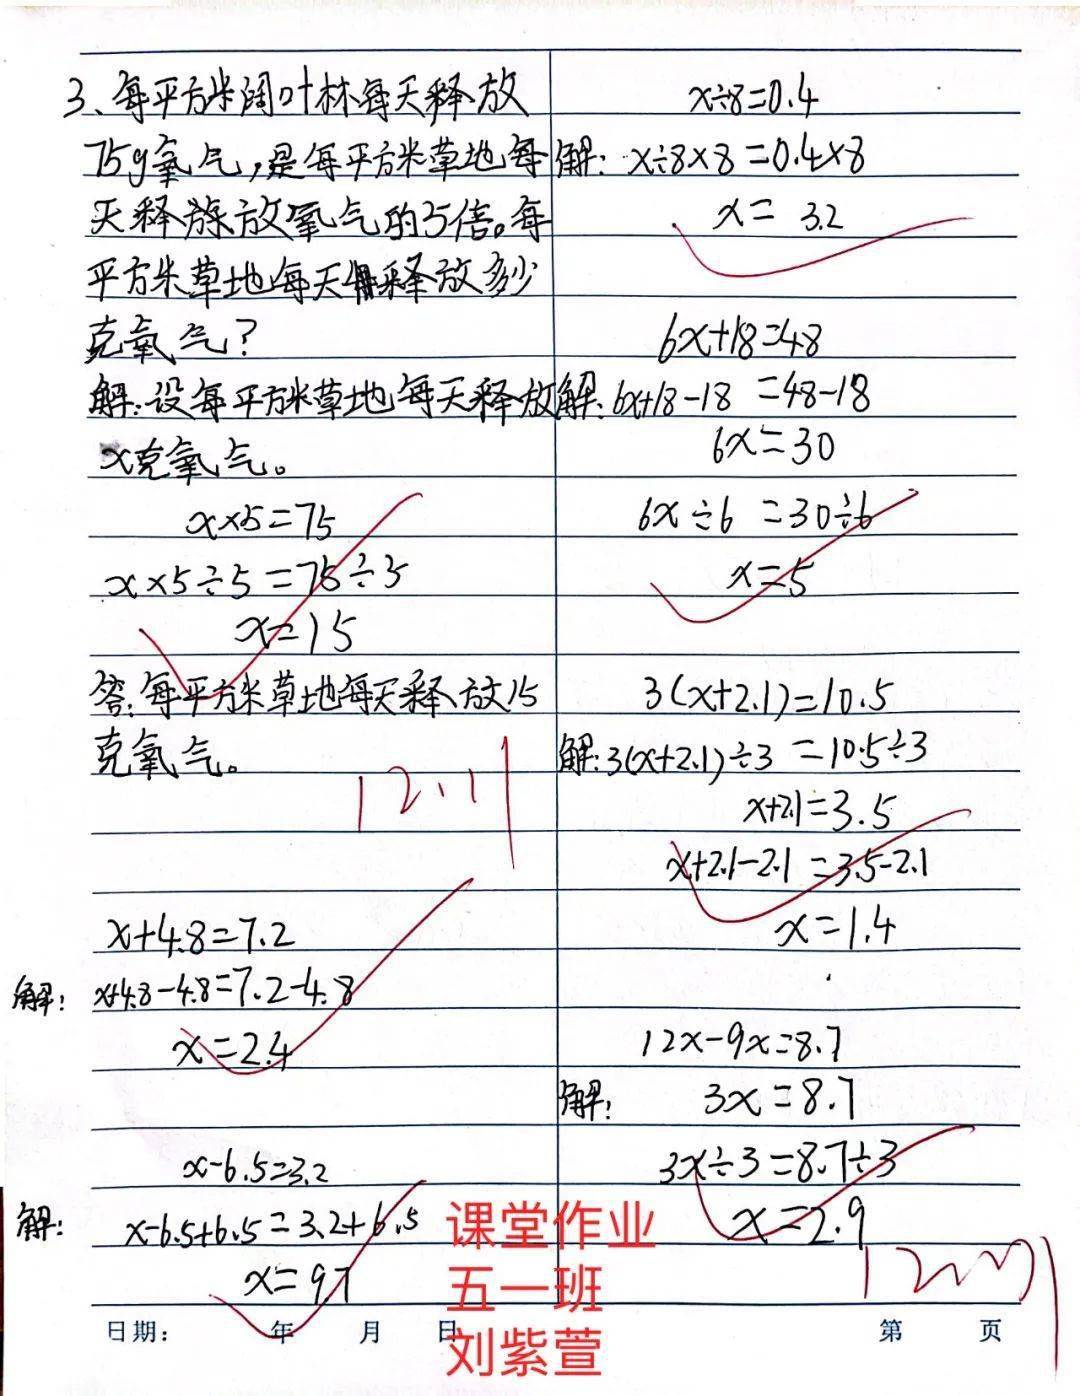 3、每平方米阔叶林每天释放
75g氧气,是每平方米草地每
天释放氧气的5倍。每
平方米草地每天释放多少
克氧气?
解:设每平方米草地每天释放
x克氧气。
x×5=75
x×5÷5=75÷5
x=15
答:每平方米草地每天释放15
克氧气。
12.11
x+4.8=7.2
解: x+4.8-4.8=7.2-4.8
x=2.4
x-6.5=3.2
解: x-6.5+6.5=3.2+6.5
x=9.7
x÷8=0.4
解: x÷8×8=0.4×8
x=3.2
6x+18=48
解: 6x+18-18=48-18
6x=30
6x÷6=30÷6
x=5
3(x+2.1)=10.5
解:3(x+2.1)÷3=10.5÷3
x+2.1=3.5
x+2.1-2.1=3.5-2.1
x=1.4
12x-9x=8.7
解: 3x=8.7
3x÷3=8.7÷3
x=2.9
课堂作业
五一班
刘紫萱
日期: 年 月 日
第 页